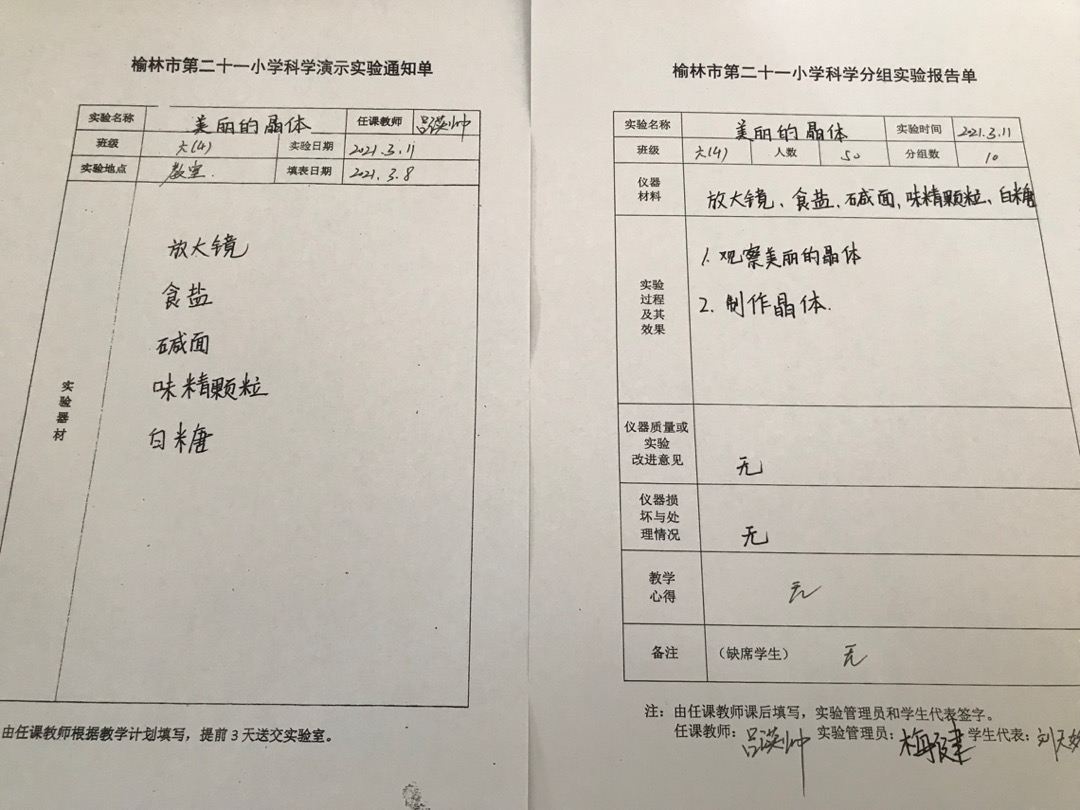 榆林市第二十一小学科学演示实验通知单
实验名称 美丽的晶体 任课教师 吕瑛帅
班级 六(4) 实验日期 2021.3.11
实验地点 教室. 填表日期 2021.3.8
实验器材
放大镜
食盐
碱面
味精颗粒
白米唐
由任课教师根据教学计划填写，提前3天送交实验室。
榆林市第二十一小学科学分组实验报告单
实验名称 美丽的晶体 实验时间 2021.3.11
班级 六(4) 人数 50 分组数 10
仪器材料 放大镜、食盐、碱面，味精颗粒、白糖
实验过程及其效果
1. 观察美丽的晶体
2. 制作晶体.
仪器质量或实验改进意见 无
仪器损坏与处理情况 无
教学心得 无
备注 （缺席学生） 无
注：由任课教师课后填写，实验管理员和学生代表签字。
任课教师：吕瑛帅 实验管理员： 学生代表：